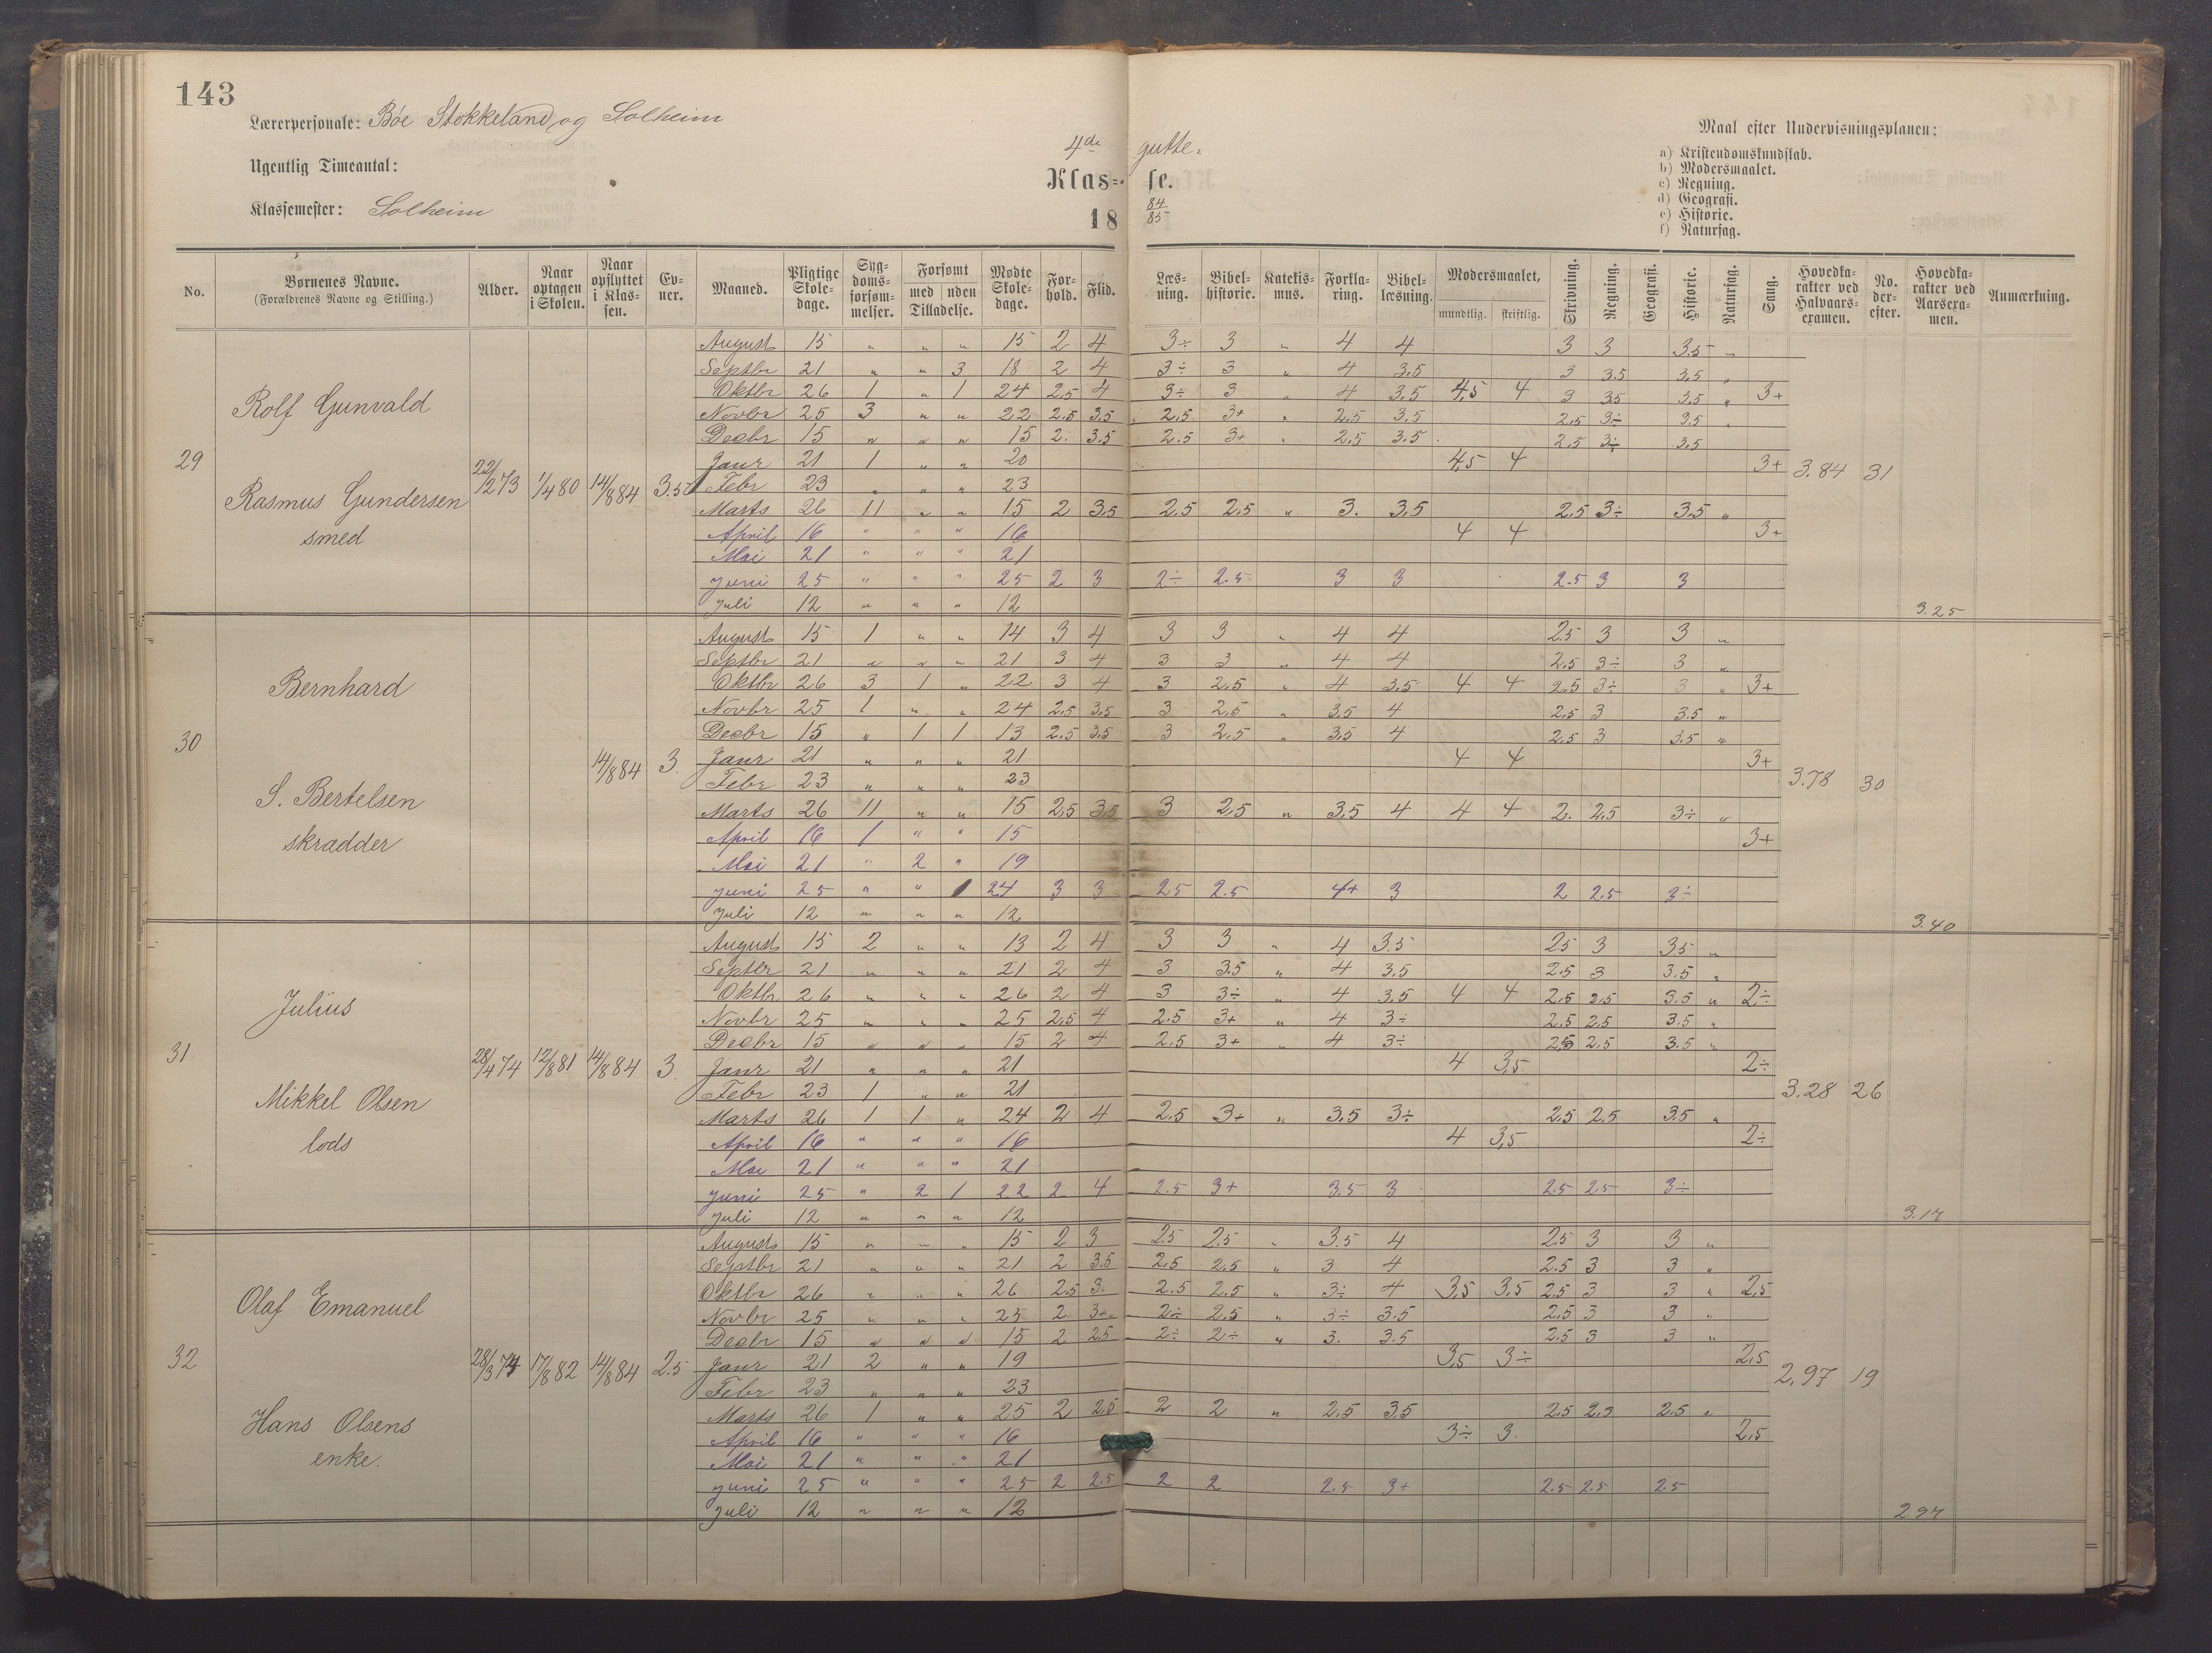 143
Lærerpersonale: Bøe Stokkeland og Solheim
Ugentlig Timeantal:
Klassemester: Solheim
4de gutte-
Klas- se.
18 84/85
Maal efter Undervisningsplanen:
a) Kristendomskundskab.
b) Modersmaalet.
c) Regning.
d) Geografi.
e) Historie.
f) Naturfag.
No. Børnenes Navne. (Forældrenes Navne og Stilling.) Alder. Naar optagen i Skolen. Naar opflyttet i Klassen. Evner. Maaned. Pligtige Skoledage. Sygdomsforsømmelser. Forsømt med uden Tilladelse. Mødte Skoledage. Forhold. Flid. Læsning. Bibelhistorie. Katekismus. Forklaring. Bibellæsning. Modersmaalet, mundtlig. skriftlig. Skrivning. Regning. Geografi. Historie. Naturfag. Sang. Hovedkarakter ved Halvaarsexamen. No. derefter. Hovedkarakter ved Aarsexamen. Anmærkning.
29 Rolf Gunvald
Rasmus Gundersen
smed
22/2 73 1/4 80 14/8 84 3.5
August 15 „ „ „ 15 2 4 3÷ 3 „ 4 4 3 3 3.5 „
Septbr 21 „ „ 3 18 2 4 3÷ 3 „ 4 3.5 3 3.5 3.5 „
Oktbr 26 1 „ 1 24 2.5 4 3÷ 3 „ 4 3.5 4,5 4 3 3.5 3.5 „ 3+
Novbr 25 3 „ „ 22 2.5 3.5 2.5 3+ „ 2.5 3.5 2.5 3÷ 3.5 „
Decbr 15 „ „ „ 15 2. 3.5 2.5 3+ „ 2.5 3.5 2.5 3÷ 3.5
Janr 21 1 „ „ 20 4,5 4 3+ 3.84 31
Febr 23 „ „ „ 23
Marts 26 11 „ „ 15 2 3.5 2.5 2.5 „ 3. 3.5 2.5 3÷ 3.5 „
April 16 „ „ „ 16 4 4 3+
Mai 21 „ „ „ 21
juni 25 „ „ „ 25 2 3 2÷ 2.5 3 3 2.5 3 3
Juli 12 „ „ „ 12 3.25
30 Bernhard
S. Bertelsen
skrædder
14/8 84 3.
August 15 1 „ „ 14 3 4 3 3 „ 4 4 2.5 3 3 „
Septbr 21 „ „ „ 21 3 4 3 3 „ 4 4 2.5 3÷ 3 „
Oktbr 26 3 1 „ 22 3 4 3 2.5 „ 4 3.5 4 4 2.5 3÷ 3 „ 3+
Novbr 25 1 „ „ 24 2.5 3.5 3 2.5 „ 3.5 4 2.5 3 3.5 „
Decbr 15 „ 1 1 13 2.5 3.5 3 2.5 „ 3.5 4 2.5 3 3.5 „
Janr 21 „ „ „ 21 4 4 3+
Febr 23 „ „ „ 23 3.78 30
Marts 26 11 „ „ 15 2.5 3.5 3 2.5 „ 3.5 4 4 4 2. 2.5 3÷ „
April 16 1 „ „ 15 3+
Mai 21 „ 2 „ 19
juni 25 „ „ 1 24 3 3 2.5 2.5 4+ 3 2 2.5 3÷
Juli 12 „ „ „ 12 3.40
31 Julius
Mikkel Olsen
lods
28/4 74 12/8 81 14/8 84 3.
August 15 2 „ „ 13 2 4 3 3 „ 4 3.5 2.5 3 3.5 „
Septbr 21 „ „ „ 21 2 4 3 3.5 „ 4 3.5 2.5 3 3.5 „
Oktbr 26 „ „ „ 26 2 4 3 3÷ „ 4 3.5 4 4 2.5 2.5 3.5 „ 2÷
Novbr 25 „ „ „ 25 2.5 4 2.5 3+ „ 4 3÷ 2.5 2.5 3.5 „
Decbr 15 „ „ „ 15 2 4 2.5 3+ „ 4 3÷ 2.5 2.5 3.5 „
Janr 21 „ „ „ 21 4 3,5 2÷
Febr 23 1 „ „ 21 3.28 26
Marts 26 1 1 „ 24 2 4 2.5 3+ „ 3.5 3÷ 2.5 2.5 3.5 „
April 16 „ „ „ 16 4 3,5 2÷
Mai 21 „ „ „ 21
juni 25 „ 2 1 22 2 4 2.5 3+ 3.5 3 2.5 2.5 3÷
Juli 12 „ „ „ 12 3.17
32 Olaf Emanuel
Hans Olsens
enke.
28/3 74 17/8 82 14/8 84 2.5
August 15 „ „ „ 15 2 3 2.5 2.5 „ 3.5 4 2.5 3 3 „
Septbr 21 „ „ „ 21 2 3.5 2.5 2.5 „ 3 4 2.5 3 3 „
Oktbr 26 „ „ „ 26 2.5 3. 2.5 2.5 „ 3÷ 4 3,5 3,5 2.5 3 3 „ 2,5
Novbr 25 „ „ „ 25 2. 3+ 2÷ 2.5 „ 3÷ 3.5 2.5 3 3 „
Decbr 15 „ „ „ 15 2 2.5 2÷ 2÷ „ 3. 3.5 2.5 3 3 „
Janr 21 2 „ „ 19 3,5 3÷ 2,5
Febr 23 „ „ „ 23 2,97 19
Marts 26 1 „ „ 25 2 2.5 2 2 „ 2.5 3.5 2.5 2.5 2.5 „
April 16 „ „ „ 16 3÷ 3. 2,5
Mai 21 „ „ „ 21
juni 25 „ „ „ 25 2 2.5 2 2 2.5 3+ 2.5 2.5 2.5
Juli 12 „ „ „ 12 2.97